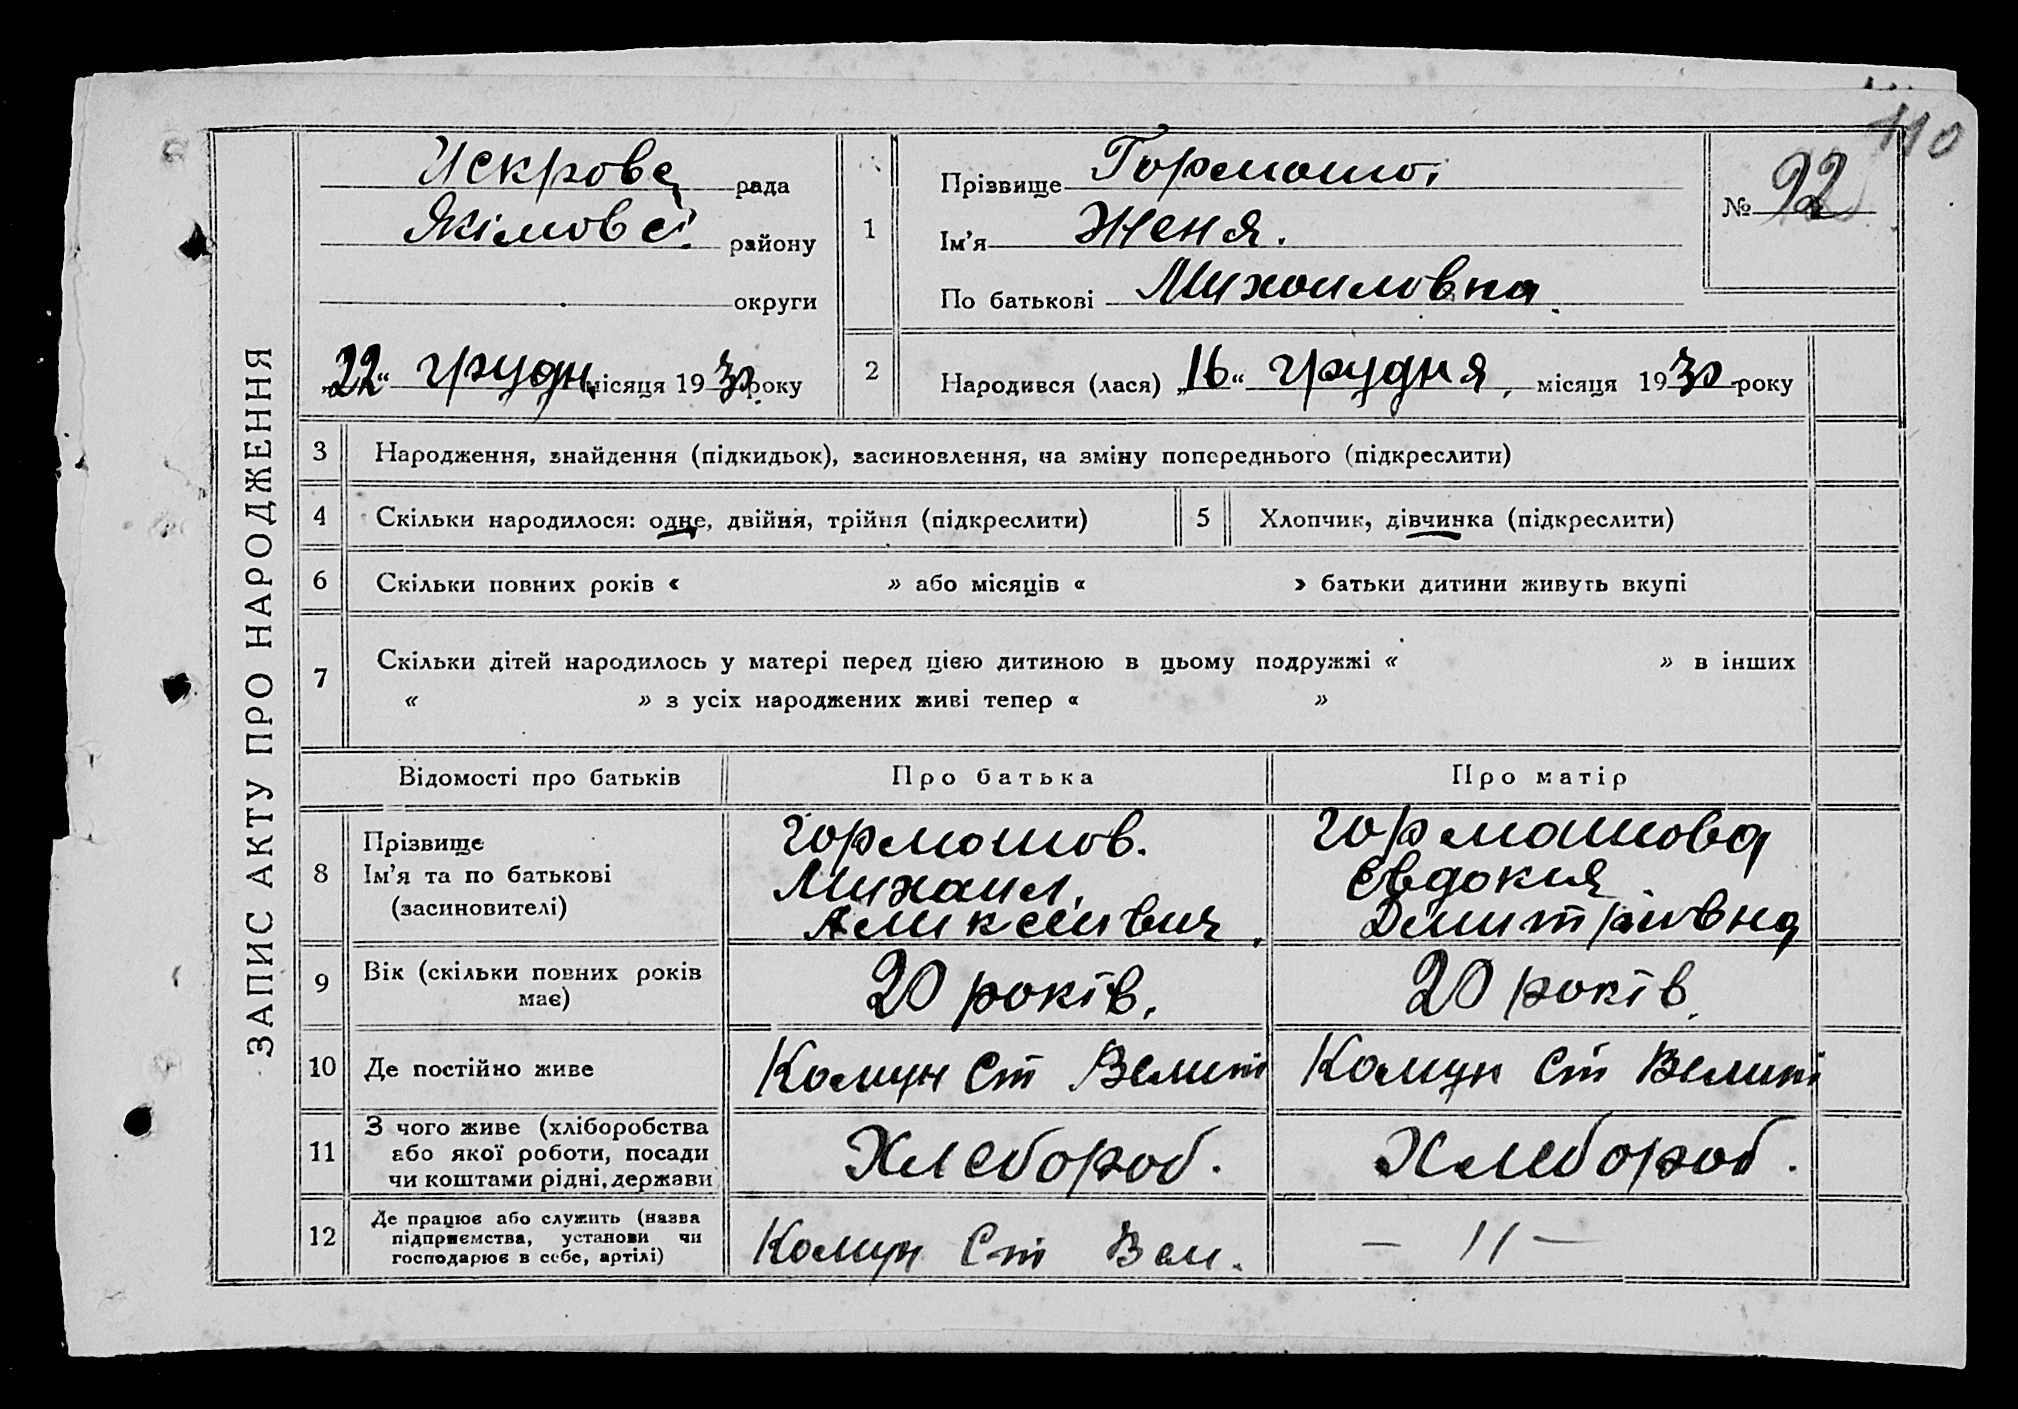 ЗАПИС АКТУ ПРО НАРОДЖЕННЯ
110
Искрова рада
Якімовсі району
округи
„22“ грудн місяця 1930 року
1
Прізвище Гормашо.
Ім’я Женя.
По батькові Михаиловна
№ 92
2
Народився (лася) „16“ грудня, місяця 1930 року
3 Народження, знайдення (підкидьок), засиновлення, на зміну попереднього (підкреслити)
4 Скільки народилося: одне, двійня, трійня (підкреслити)
5 Хлопчик, дівчинка (підкреслити)
6 Скільки повних років « » або місяців « » батьки дитини живуть вкупі
7 Скільки дітей народилось у матері перед цією дитиною в цьому подружжі « » в інших
« » з усіх народжених живі тепер « »
Відомості про батьків Про батька Про матір
8
Прізвище
Ім’я та по батькові
(засиновителі)
Гормашов.
Михаил.
Аликсеивич,
Гормашова
Евдокия
Дмитріивна
9
Вік (скільки повних років
має)
20 років.
20 років.
10 Де постійно живе
Комун Ст
Комун Ст
11
З чого живе (хліборобства
або якої роботи, посади
чи коштами рідні, держави
Хлебороб.
Хлебороб.
12
Де працює або служить (назва
підприємства, установи чи
господарює в себе, артілі)
Комун Ст Вел.
— 11 —